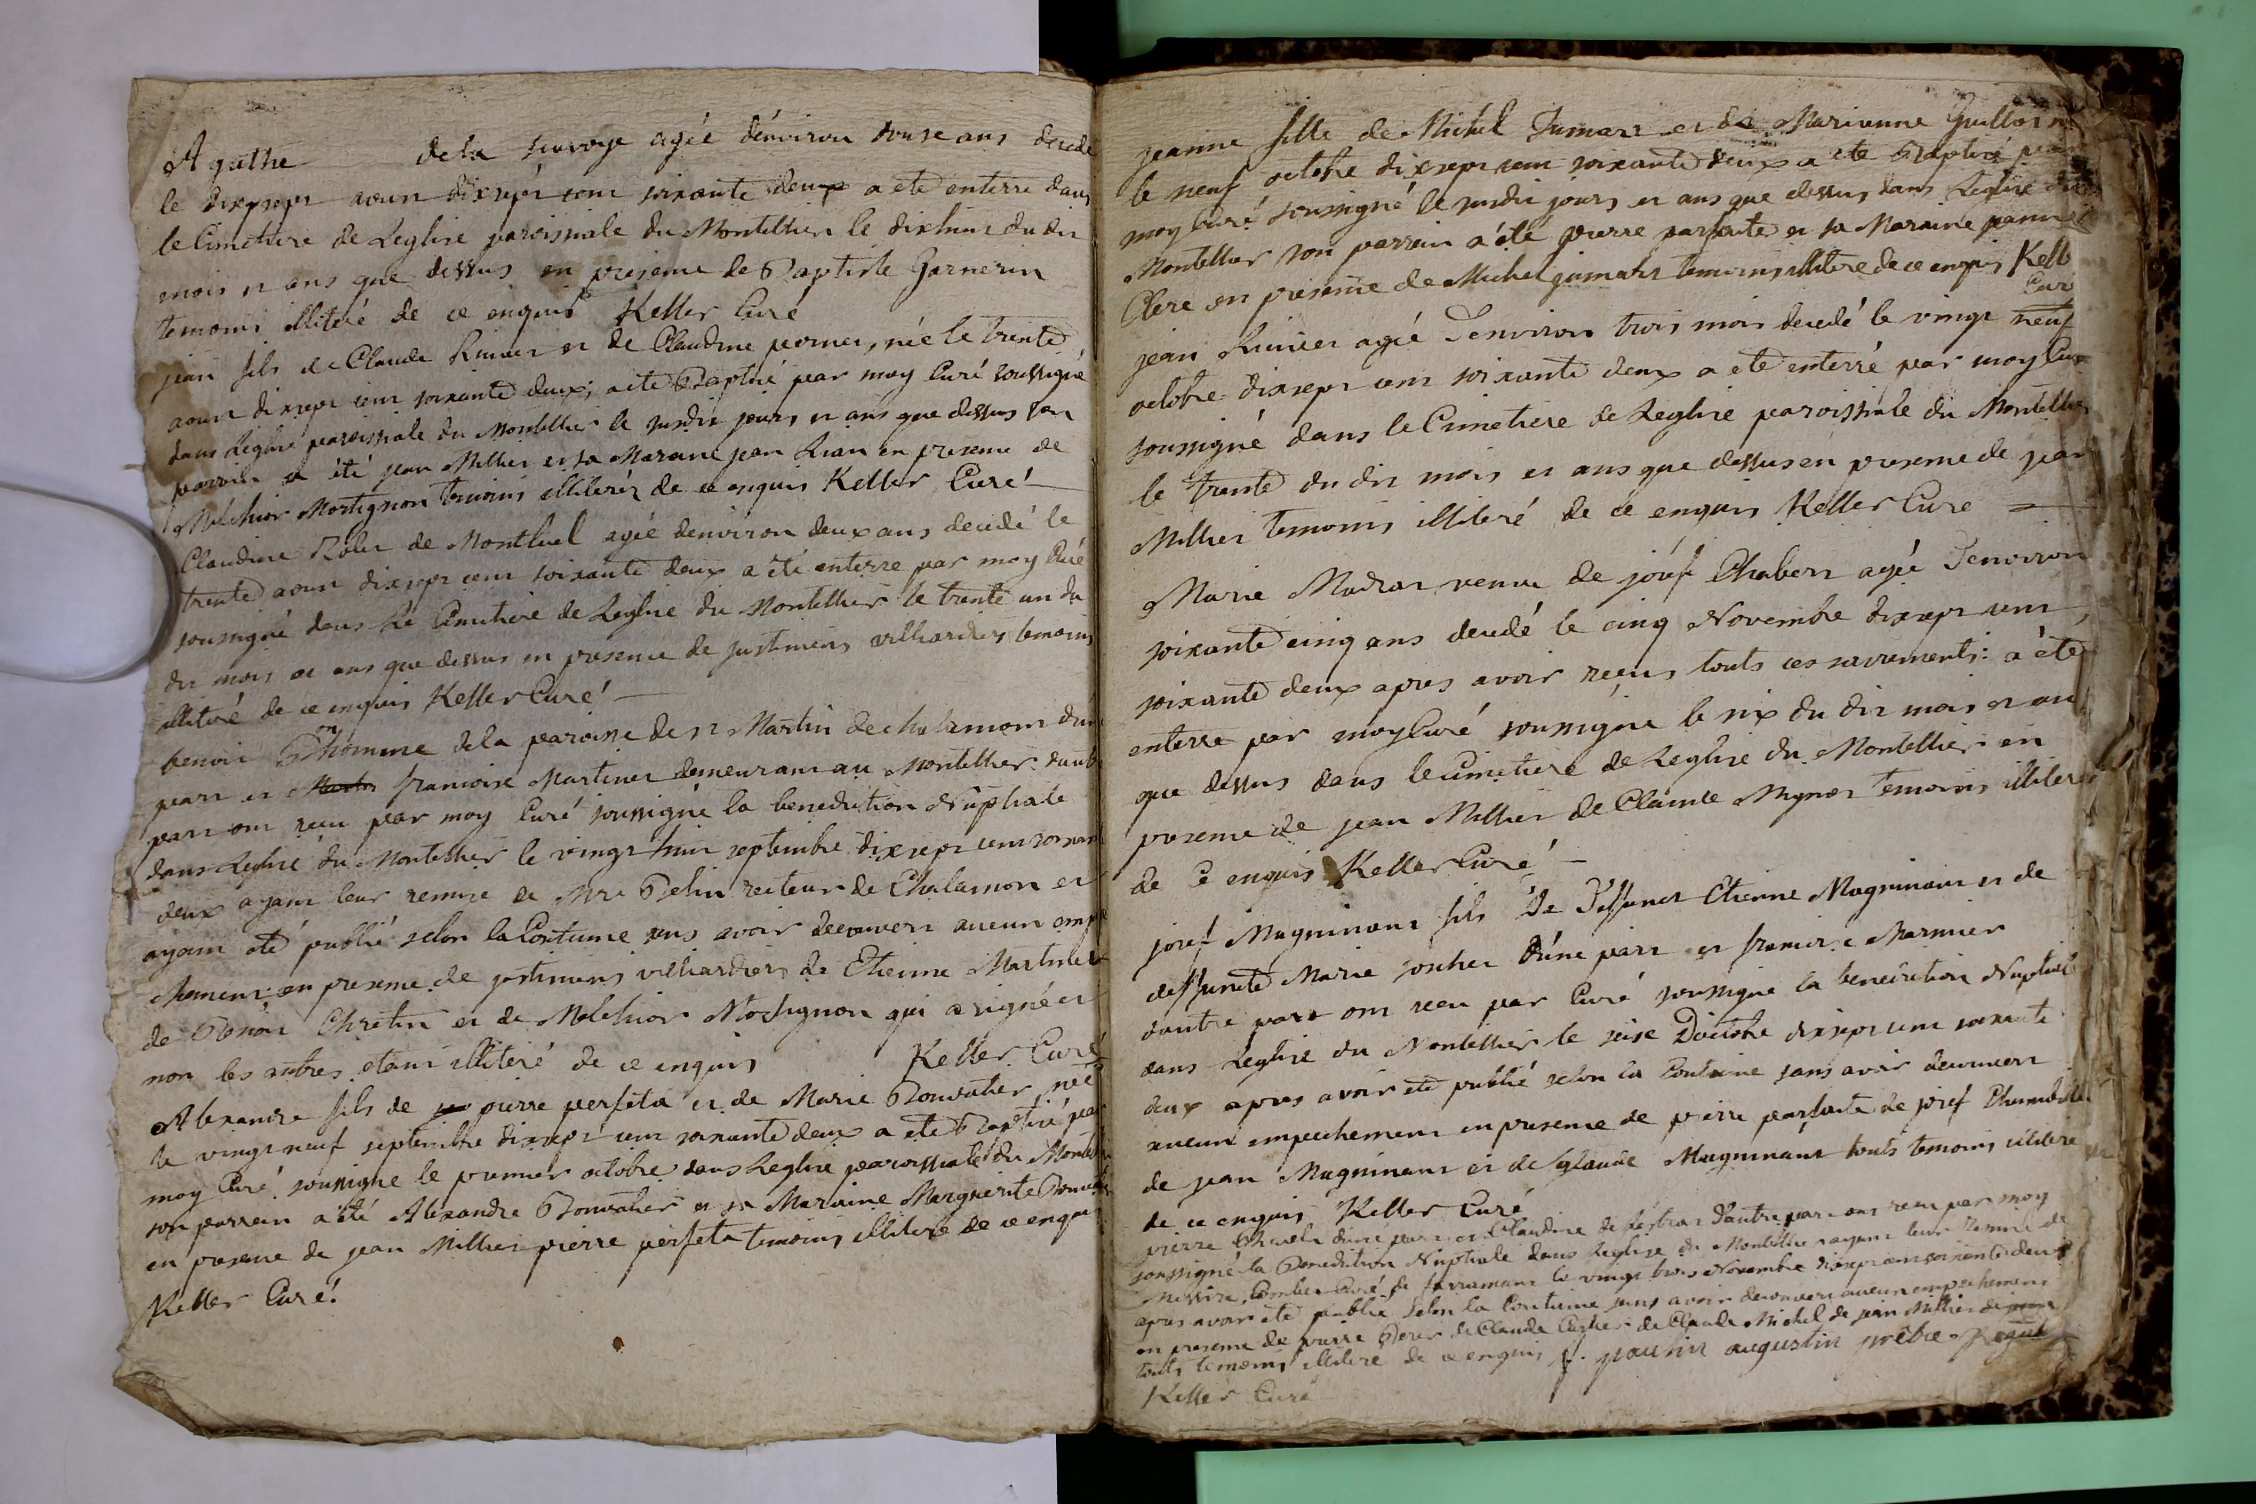 Agathe de la savoye agée denviron douse ans decede
le dixsept aoust dixsept cent soixante deux a eté enterre dans
le Cimetiere de Leglise paroissiale du Montellier le dixhuit du dit
mois et ans que dessus en presence de Baptiste Garnerin
temoins illiteré de ce enquis Keller Curé
jean fils de Claude Runier et de Claudine perner, née le trente
aoust dixsept cent soixante deux, a ete Baptisé par moy Curé soussigné
dans Leglise paroissiale du Montellier le susdit jours et ans que dessus son
parrain a été jean Millier et sa Maraine jean Rian en presence de
Melchior Mortignon temoins illiterés de ce enquis Keller Curé
Claudine Rolet de Montluel agée denviron deux ans decedé le
trente aoust dixsept cent soixante deux a été enterre par moy Curé
soussigné dans Le Cimetiere de Leglise du Montellier le trente un du
dit mois et ans que dessus en presence de justiniens villiardiers temoins
illiteré de ce enquis Keller Curé
benoit Bonhomme de la paroisse de st Martin de chalamont dune
part et francoise Martinet demeurant au Montellier dautre
part ont recu par moy Curé soussigné la benediction Nuptiale
dans Leglise du Montellier le vingt huit septembre dixsept cent soixante
deux ayant leur remise de Mre Belin recteur de Chalamon et
ayant eté publié selon la Coutume sans avoir decouvert aucun empe
chement en presence de justiniens villiardiers de Etienne Martinet
de Benoit Chretin et de Melchior Mortignon qui a signé et
non les autres etant illiteré de ce enquis Keller Curé
Alexandre fils de pierre perfeta et de Marie Bonvatier née
le vingt neuf septembre dixsept cent soixante deux a eté Baptisé par
moy Curé soussigné le premier octobre dans Leglise paroissiale du Montellier
son parrain a été Alexandre Bonvatier et sa Maraine Marguerite Bonvatier
en presence de jean Millier pierre perfeta temoins illiteré de ce enquis
Keller Curé
jeanne fille de Michel Jumart et de Marianne Guillot
le neuf octobre dixsept cent soixante deux a ete Baptisé par
moy Curé soussigné le susdit jours et ans que dessus dans Leglise du
Montellier son parrain a été pierre parfaite et sa Maraine
Clere en presence de Michel jumart temoins illiteré de ce enquis Kell
Cur
jean Runier agé Denviron trois mois decedé le vingt neuf
octobre dixsept cent soixante deux a eté enterré par moy Curé
soussigné dans le Cimetiere de Leglise paroissiale du Montellier
le trente du dit mois et ans que dessus en presence de jean
Millier temoins illiteré de ce enquis Keller Cure
Marie Madras venue de joséf Chabert agée Denviron
soixante cinq ans decedé le cinq Novembre dixsept cent
soixante deux apres avoir reçus touts ces sacrements a été
enterre par moy Curé soussigné le six du dit mois et an
que dessus dans le Cimetiere de Leglise du Montellier en
presence de jean Millier de Claude Mignot temoins illiteres
de Ce enquis Keller Curé
joséf Magninant fils De Deffunct Etienne Magninant et de
deffuncte Marie socher d'une part et francoise Marmier
dautre part ont recu par Curé soussigné la benediction Nuptiale
dans Leglise du Montellier le seise Doctobre dixsept cent soixante
deux apres avoir eté publié selon la Coutume sans avoir decouvert
aucun empechement en presence de pierre parfaite de joséf
de jean Magninant et de glaude Magninant touts temoins illiteré
de ce enquis Keller Curé
pierre d'une part et Claudine de Lestrar D'autre part ont recu par moy
soussigné la Benediction Nuptiale dans Leglise du Montellier ayant leur remise de
Messire Curé de le vingt trois Novembre dixsept cent soixante deux
apres avoir eté publié selon la Coutume sans avoir decouvert aucun empechement
en presence de pierre de Claude de Claude Michel de jean Millier
touts temoins illiteré de ce enquis f. augustin prêtre
Keller Curé